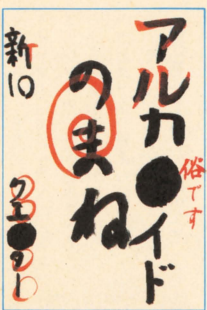 アルカ●イド
俗です
のまね
新10